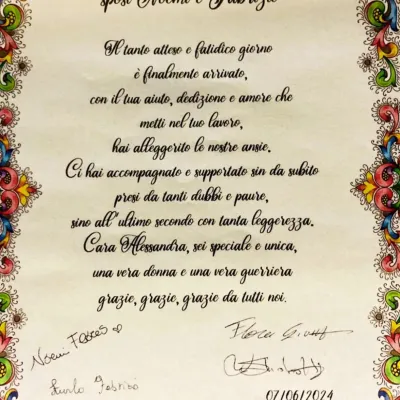 sposi Noemi e Fabrizio
Il tanto atteso e fatidico giorno
è finalmente arrivato,
con il tua aiuto, dedizione e amore che
metti nel tuo lavoro,
hai alleggerito le nostre ansie.
Ci hai accompagnato e supportato sin da subito
presi da tanti dubbi e paure,
sino all'ultimo secondo con tanta leggerezza.
Cara Alessandra, sei speciale e unica,
una vera donna e una vera guerriera
grazie, grazie, grazie da tutti noi.
Noemi
07/06/2024